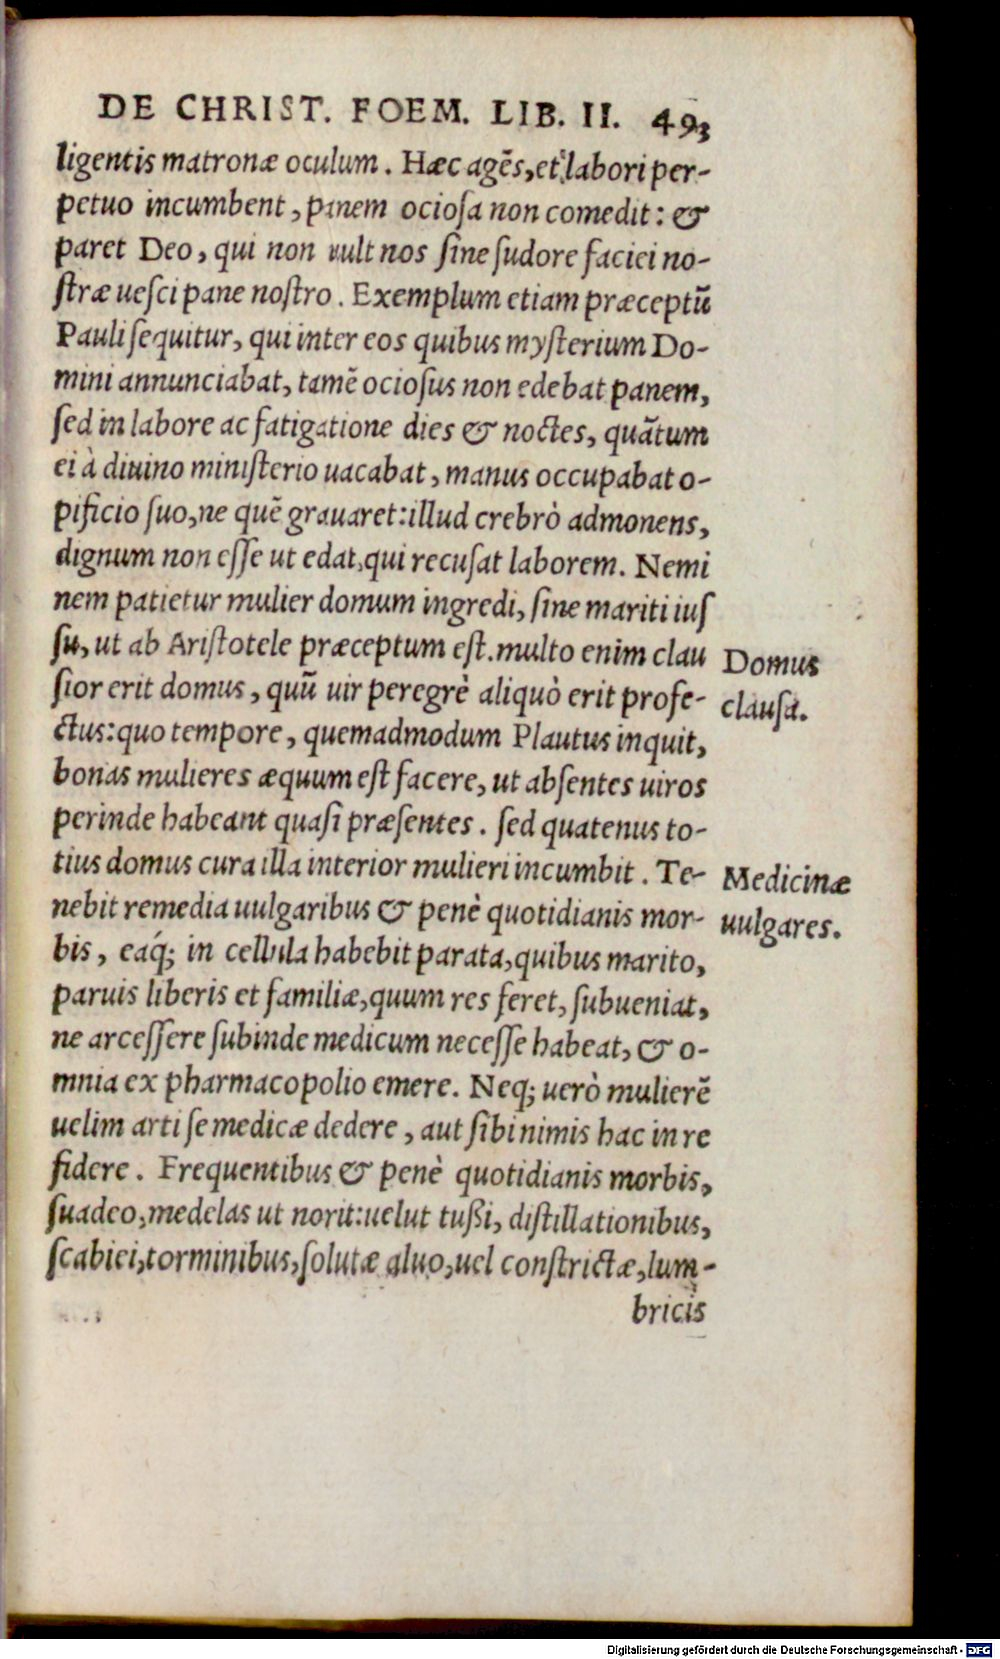 DE CHRIST. FOEM. LIB. II. 493
ligentis matronæ oculum. Hæc agẽs, et labori per-
petuo incumbent, panem ocioſa non comedit: &
paret Deo, qui non vult nos ſine ſudore faciei no-
ſtræ ueſci pane noſtro. Exemplum etiam præceptũ
Pauli ſequitur, qui inter eos quibus myſterium Do-
mini annunciabat, tamẽ ocioſus non edebat panem,
ſed in labore ac fatigatione dies & noctes, quãtum
ei à diuino miniſterio uacabat, manus occupabat o-
pificio ſuo, ne quẽ grauaret: illud crebrò admonens,
dignum non eſſe ut edat, qui recuſat laborem. Nemi
nem patietur mulier domum ingredi, ſine mariti iuſ
ſu, ut ab Ariſtotele præceptum eſt. multo enim clau
Domus
ſior erit domus, quũ uir peregrè aliquò erit profe-
clauſa.
ctus: quo tempore, quemadmodum Plautus inquit,
bonas mulieres æquum eſt facere, ut abſentes uiros
perinde habeant quaſi præſentes. ſed quatenus to-
tius domus cura illa interior mulieri incumbit. Te-
Medicinæ
nebit remedia uulgaribus & penè quotidianis mor-
uulgares.
bis, eaq́; in cellula habebit parata, quibus marito,
paruis liberis et familiæ, quum res feret, ſubueniat,
ne arceſſere ſubinde medicum neceſſe habeat, & o-
mnia ex pharmacopolio emere. Neq; uerò mulierẽ
uelim arti ſe medicæ dedere, aut ſibi nimis hac in re
fidere. Frequentibus & penè quotidianis morbis,
ſuadeo, medelas ut norit: uelut tußi, diſtillationibus,
ſcabiei, torminibus, ſolutæ aluo, uel conſtrictæ, lum-
bricis
Digitalisierung gefördert durch die Deutsche Forschungsgemeinschaft - DFG